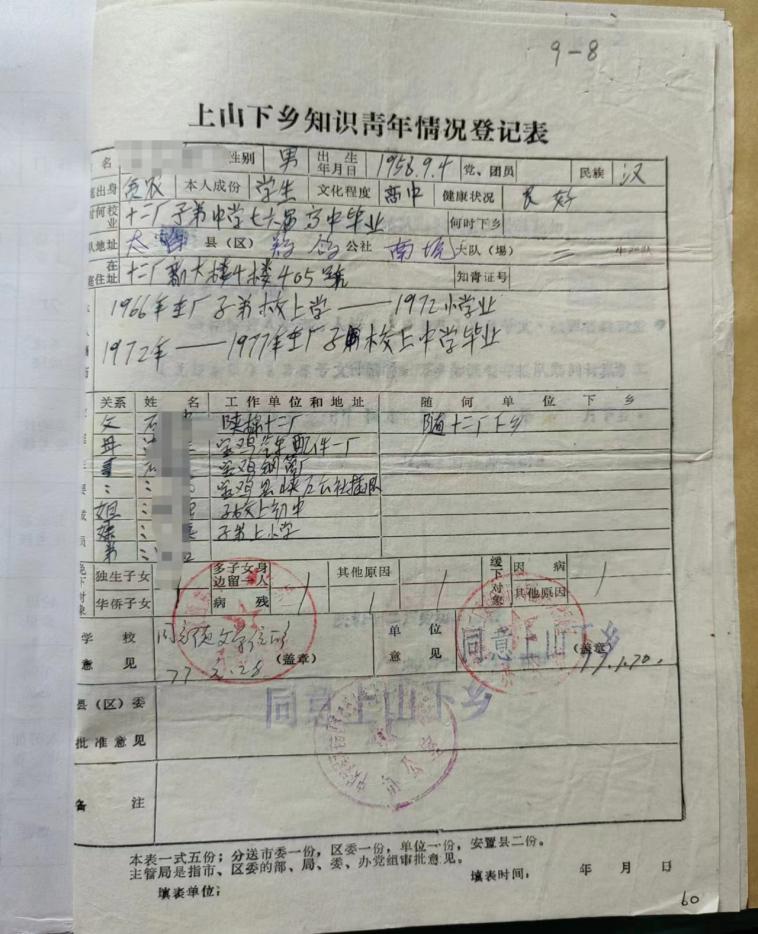 9-8
上山下乡知识青年情况登记表
名 性别 男 出生年月日 1958.9.4 党、团员 民族 汉
出身 贫农 本人成份 学生 文化程度 高中 健康状况 良好
何校业 十二厂子弟中学七六届高中毕业 何时下乡
地址 太白 县(区) 公社 南坑 大队(場) 二
在住址 十二厂新大楼4楼405号 知青证号
1966年至厂子弟校上学——1972小学业
1972年——1977年至厂子弟校上中学毕业
关系 姓名 工作单位和地址 随何单位下乡
父 石 陕棉十二厂 随十二厂下乡
母 宝鸡汽车配件一厂
石 宝鸡钢管厂
〃 〃 宝鸡县硖石公社插队
姐 〃 子校上初中
妹 〃 子弟上小学
弟 〃
独生子女 多子女身边留一人 其他原因 缓下对象 因病
华侨子女 病残 其他原因
学校意见 (盖章) 单位意见 同意上山下乡 (盖章)
77.1.20.
县(区)委批准意见 同意上山下乡
备注
本表一式五份;分送市委一份,区委一份,单位一份,安置县二份。
主管局是指市、区委的部、局、委、办党组审批意见。
填表单位: 填表时间: 年 月 日
60